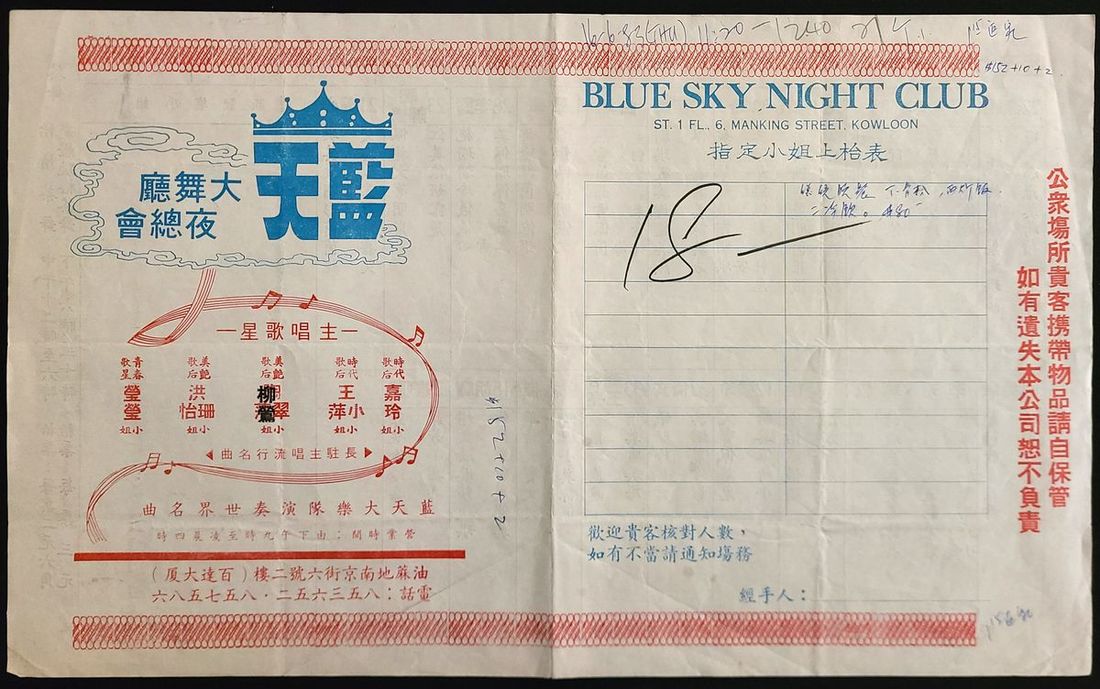 藍天
大舞廳
夜總會
—主唱歌星—
時代歌后 嘉玲小姐
時代歌后 王小萍小姐
美艷歌后 柳鶯小姐
美艷歌后 洪珊怡小姐
青春歌星 瑩瑩小姐
長駐主唱流行名曲
藍天大樂隊演奏世界名曲
營業時間：由下午九時至凌晨四時
油蔴地南京街六號二樓（百達大厦）
電話：八五三六五二·八五七五八六
$152+10+2
16-6-83(THU) 11:20 - 1240
$152+10+2
BLUE SKY NIGHT CLUB
ST. 1 FL., 6, MANKING STREET, KOWLOON
指定小姐上枱表
18
歡迎貴客核對人數，
如有不當請通知場務
經手人：
公衆場所貴客携帶物品請自保管
如有遺失本公司恕不負責